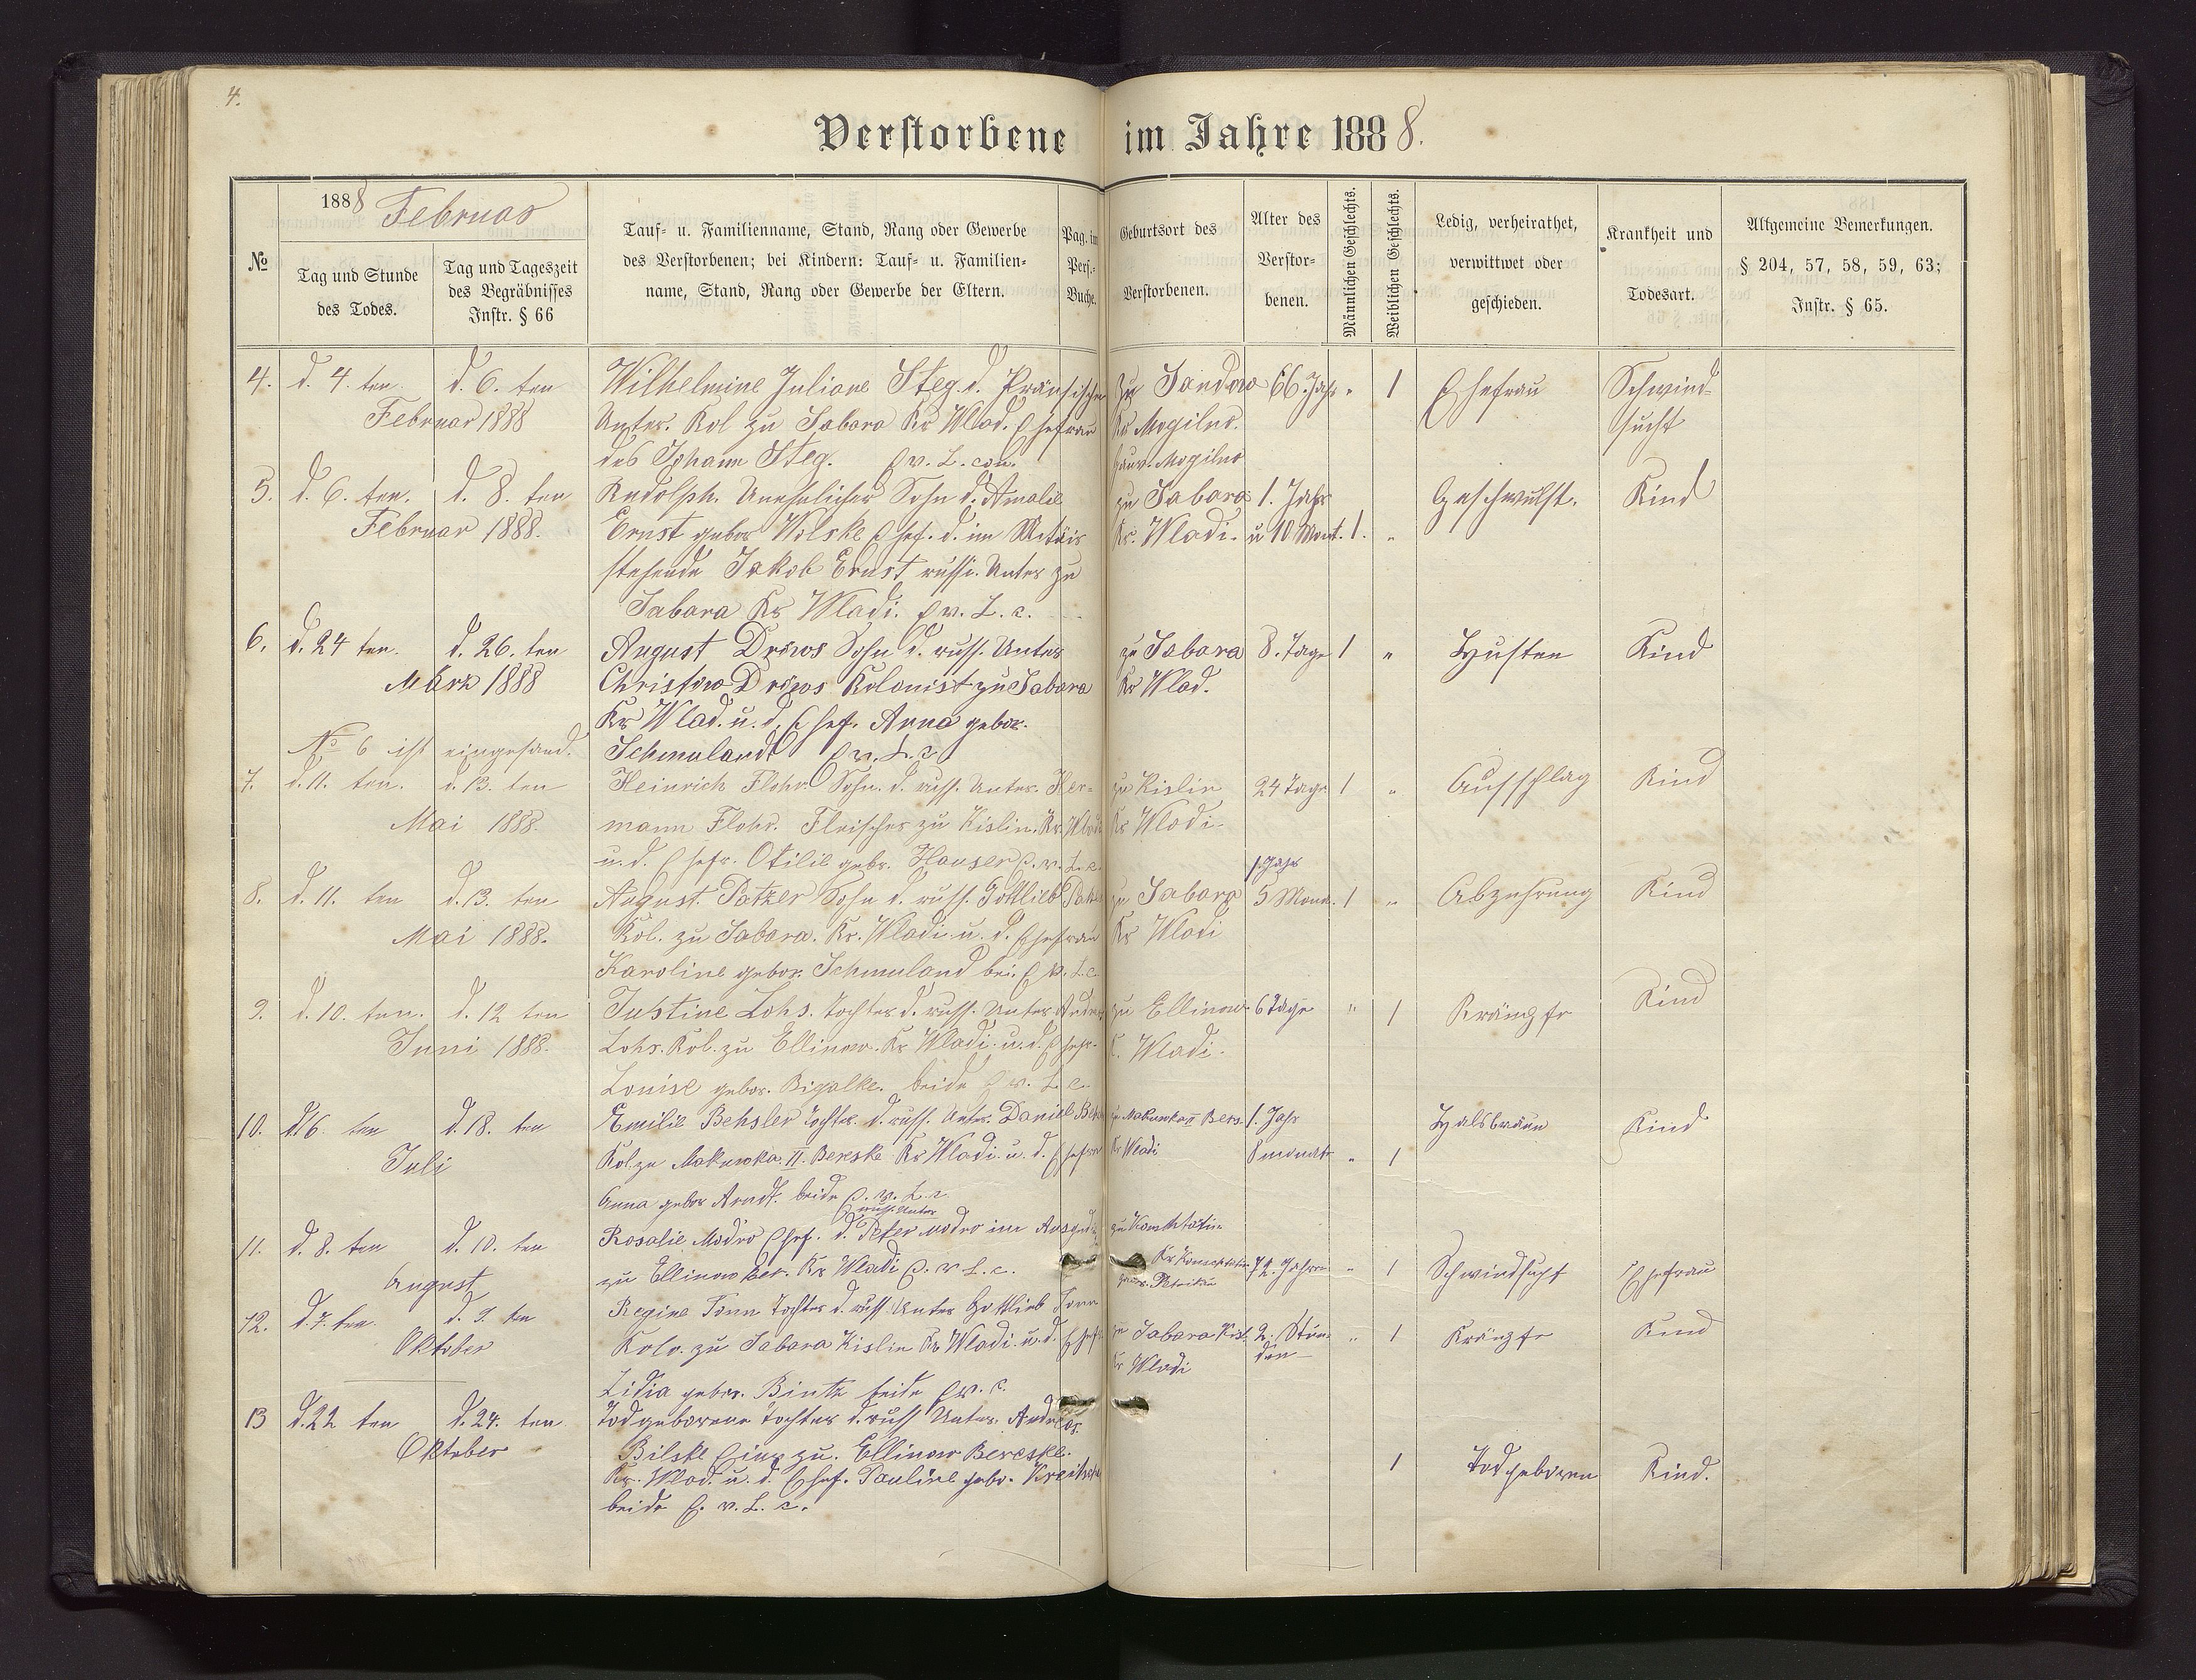 4.
Verstorbene im Jahre 1888.
1888 Februar
№
Tag und Stunde
des Todes.
Tag und Tageszeit
des Begräbnisses
Instr. § 66
Tauf- u. Familienname, Stand, Rang oder Gewerbe
des Verstorbenen; bei Kindern: Tauf- u. Familien-
name, Stand, Rang oder Gewerbe der Eltern.
Pag. im
Pers.-
Buche.
Geburtsort des
Verstorbenen.
Alter des
Verstor-
benen.
Männlichen Geschlechts.
Weiblichen Geschlechts.
Ledig, verheirathet,
verwittwet oder
geschieden.
Krankheit und
Todesart.
Allgemeine Bemerkungen.
§ 204, 57, 58, 59, 63;
Instr. § 65.
4. d. 4. ten d. 6. ten Wilhelmine Juliane Steg. d. zu 66 Jahr " 1 Ehefrau Schwind-
Februar 1888 Unter. Kol zu Sabara Kr Wlad. Ehefrau Kr Mogilno. sucht
des Johann Steg. Ev. L. con. Mogilno
5. d. 6. ten. d. 8. ten Rudolph. Unehelicher Sohn d. Amalie zu Sabara 1. Jahr Geschwulst. Kind
Februar 1888. Ernst gebor Wolske Ehef. d. im Kr. Wladi. u 10 Mont. 1. "
stehende Jakob Ernst russi. Unter zu
Sabara Kr Wladi. Ev. L. c.
6. d. 24 ten. d. 26. ten August Drews Sohn d. russ. Unter zu Sabara 8. Tage 1 " Husten Kind
März 1888 Drews Kolonist zu Sabara Kr Wlad.
Kr Wlad. u. d. Ehef. Anna gebor.
№ 6 ist eingesand. Schmuland Ev. L. c
7. d. 11. ten. d. 13. ten Heinrich Flohr. Sohn. d. russ. Unter. Her- zu Kislin 24 Tage 1 " Ausschlag Kind
Mai 1888. mann Flohr. Fleischer zu Kislin. Kr. Wladi Kr Wladi.
u. d. Ehefr. Otilie gebr. Hauser E. v. L. c.
1 Jahr
8. d. 11. ten d. 13. ten August. Patzer Sohn d. russ. Gottlieb zu Sabara 5 Mona. 1 " Abzehrung Kind
Mai 1888. Kol. zu Sabara. Kr. Wladi u. d. Ehefrau Kr Wladi
Karoline gebor. Schmuland bei. E. v. L. c.
9. d. 10. ten. d. 12 ten Justine Lohs. Tochter d. russ. Unter zu Ellinow 6 Tage " 1 Krämpfe Kind
Juni 1888. Lohs. Kol. zu Ellinow. Kr Wladi. u. d. Ehefr. Wladi.
Louise gebor. Bigalke. beide E. v. L. c.
10. d. 16 ten d. 18. ten Emilie Behsler Tochter. d. russ. Unter. Daniel zu Makowka II Beres. 1. Jahr Halsbräun Kind
Juli Kol. zu Makowka. II. Bereske Kr Wladi. u. d. Kr Wladi 8 monate " 1
Anna gebor Arndt. beide E. v. L. c
russ. Unter
11. d. 8. ten d. 10. ten Rosalie Modro Ehef. d. Peter Modro im
August zu Ellinow Ber. Kr Wladi E. v. L. c. 72. Jahren " 1 Schwindsucht Ehefrau
12. d. 7. ten. d. 9. ten Regine Tonn Tochter d. russ. Unter Gottlieb Tonn
Oktober Kolo. zu Sabara Kislin Kr Wladi. u. d. zu Sabara Kisl. 2. Stün- " 1 Krämpfe Kind
den Kr Wladi
Lidia gebor. Bintz beide Ev. c.
13 d. 22 ten d. 24. ten Todgeborene Tochter d. russ Unter. Andreas.
Oktober Bilske zu. Ellinow Bereske.
Kr. Wlad. u. d. Ehef. Pauline gebo. 1 Todgeboren Kind.
beide E. v. L. c.